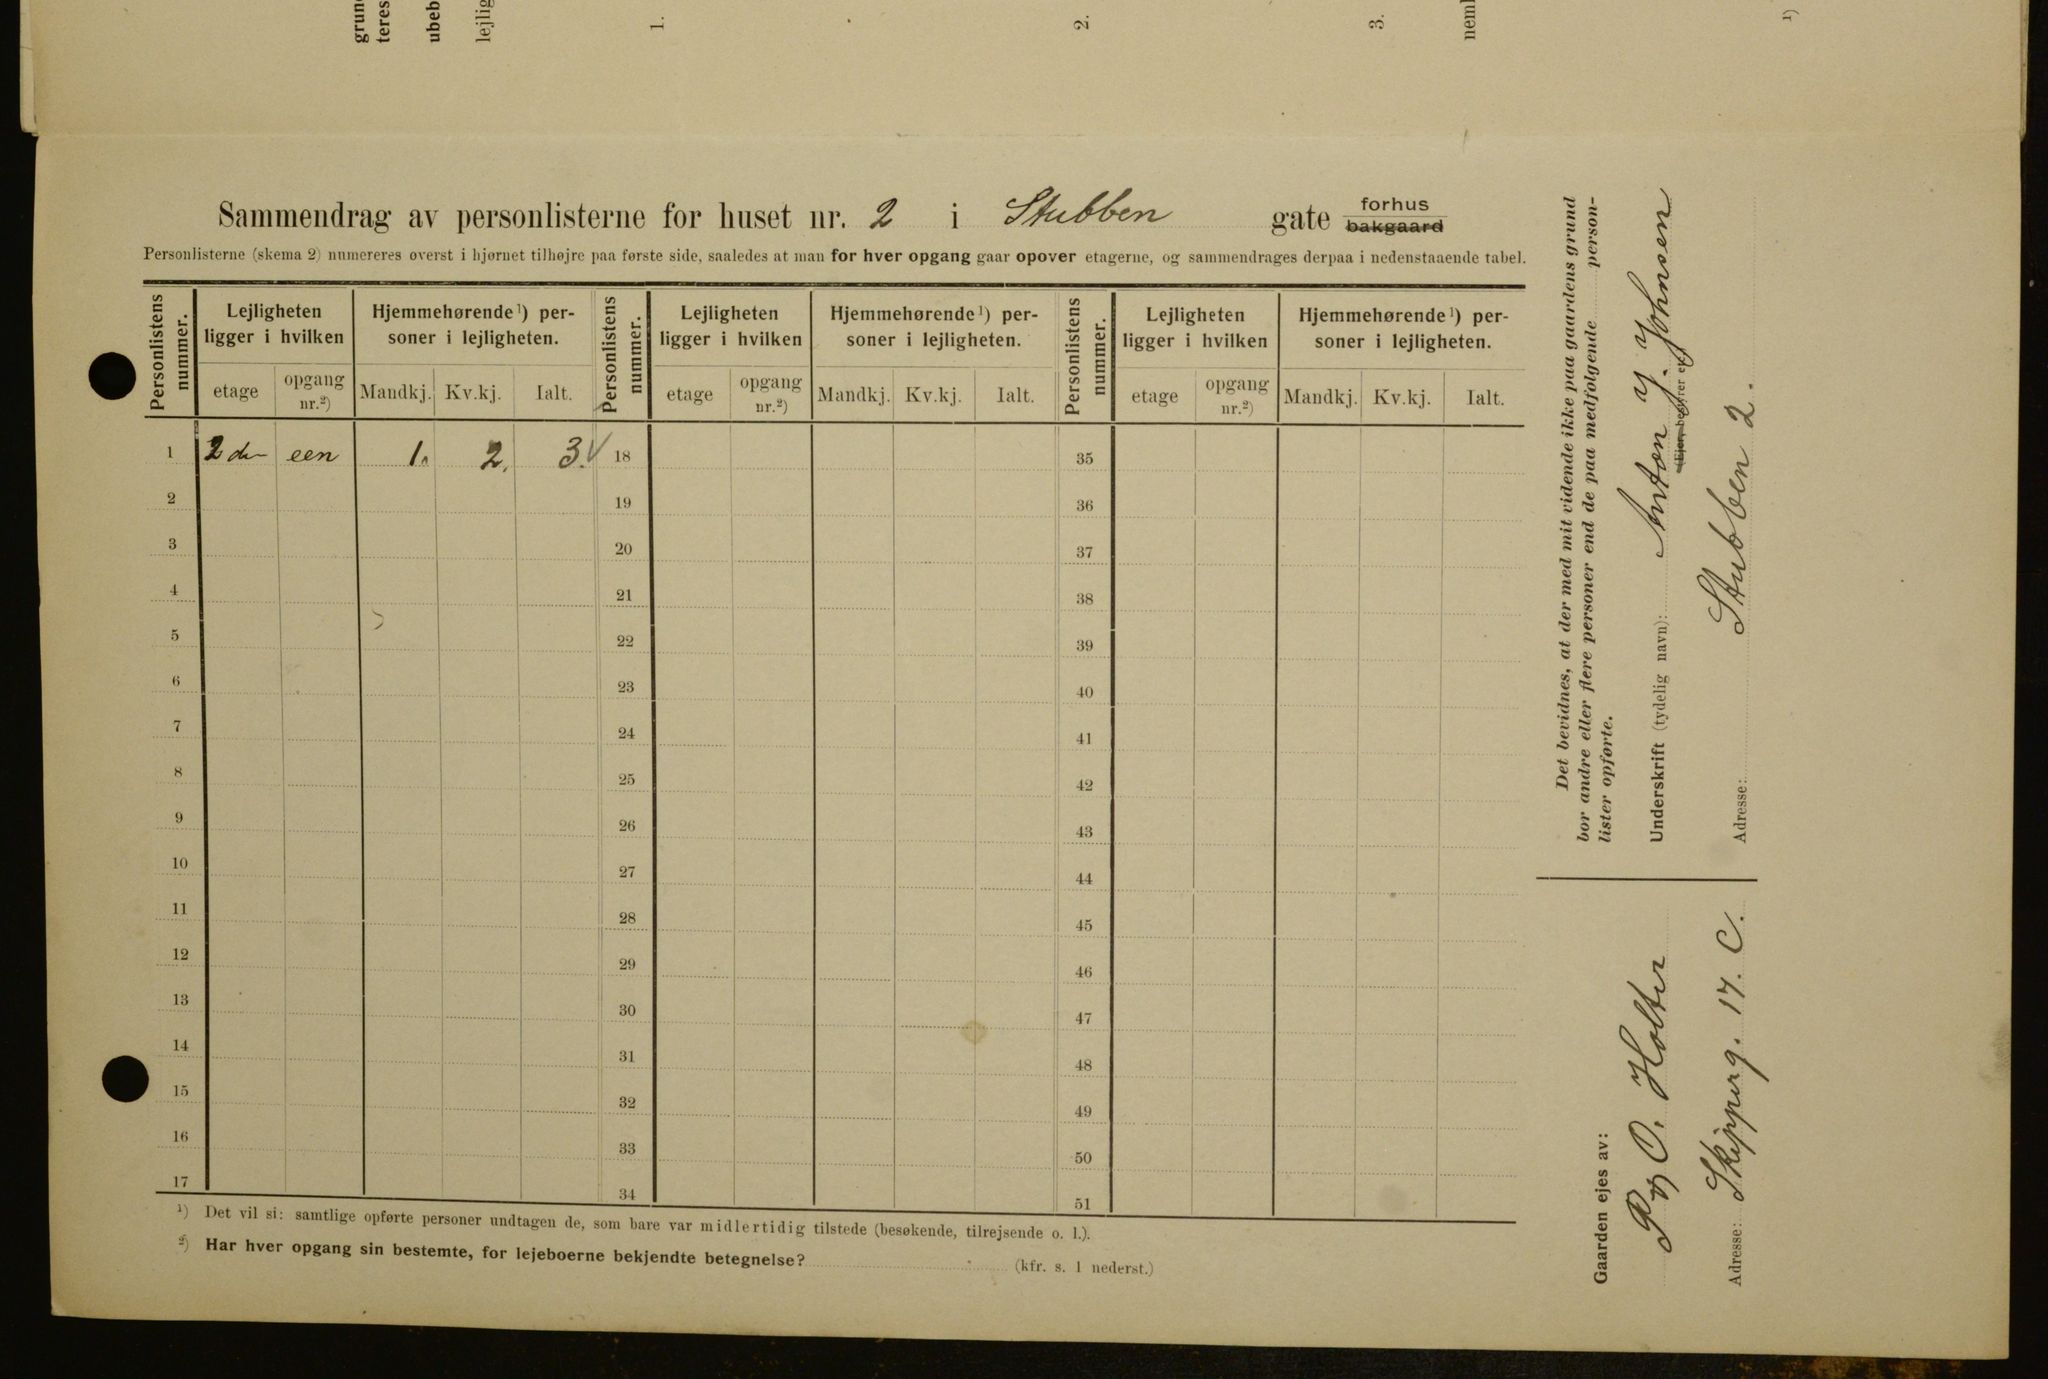 grun
teres
ubeb
lejlig
1.
2.
3.
neml
1)
Sammendrag av personlisterne for huset nr. 2 i Stubben gate forhus bakgaard
Personlisterne (skema 2) numereres øverst i hjørnet tilhøjre paa første side, saaledes at man for hver opgang gaar opover etagerne, og sammendrages derpaa i nedenstaaende tabel.
Personlistens nummer. Lejligheten ligger i hvilken Hjemmehørende¹) personer i lejligheten. Personlistens nummer. Lejligheten ligger i hvilken Hjemmehørende¹) personer i lejligheten. Personlistens nummer. Lejligheten ligger i hvilken Hjemmehørende¹) personer i lejligheten.
etage opgang nr.²) Mandkj. Kv.kj. Ialt. etage opgang nr.²) Mandkj. Kv.kj. Ialt. etage opgang nr.²) Mandkj. Kv.kj. Ialt.
1 2 den een 1. 2. 3. 18 35
2 19 36
3 20 37
4 21 38
5 22 39
6 23 40
7 24 41
8 25 42
9 26 43
10 27 44
11 28 45
12 29 46
13 30 47
14 31 48
15 32 49
16 33 50
17 34 51
¹) Det vil si: samtlige opførte personer undtagen de, som bare var midlertidig tilstede (besøkende, tilrejsende o. l.).
²) Har hver opgang sin bestemte, for lejeboerne bekjendte betegnelse? (kfr. s. 1 nederst.)
Det bevidnes, at der med mit vidende ikke paa gaardens grund
bor andre eller flere personer end de paa medfølgende person-
lister opførte.
Underskrift (tydelig navn): Anton Y. Johnsen
(Ejer, bestyrer etc.)
Adresse: Stubben 2.
Gaarden ejes av:
P. O. Holter
Adresse: Skipperg. 17. C.